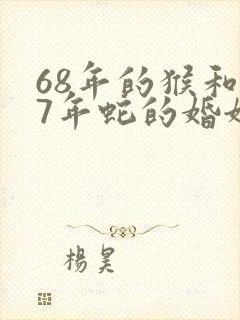 68年的猴和
7年蛇的婚
楊昊